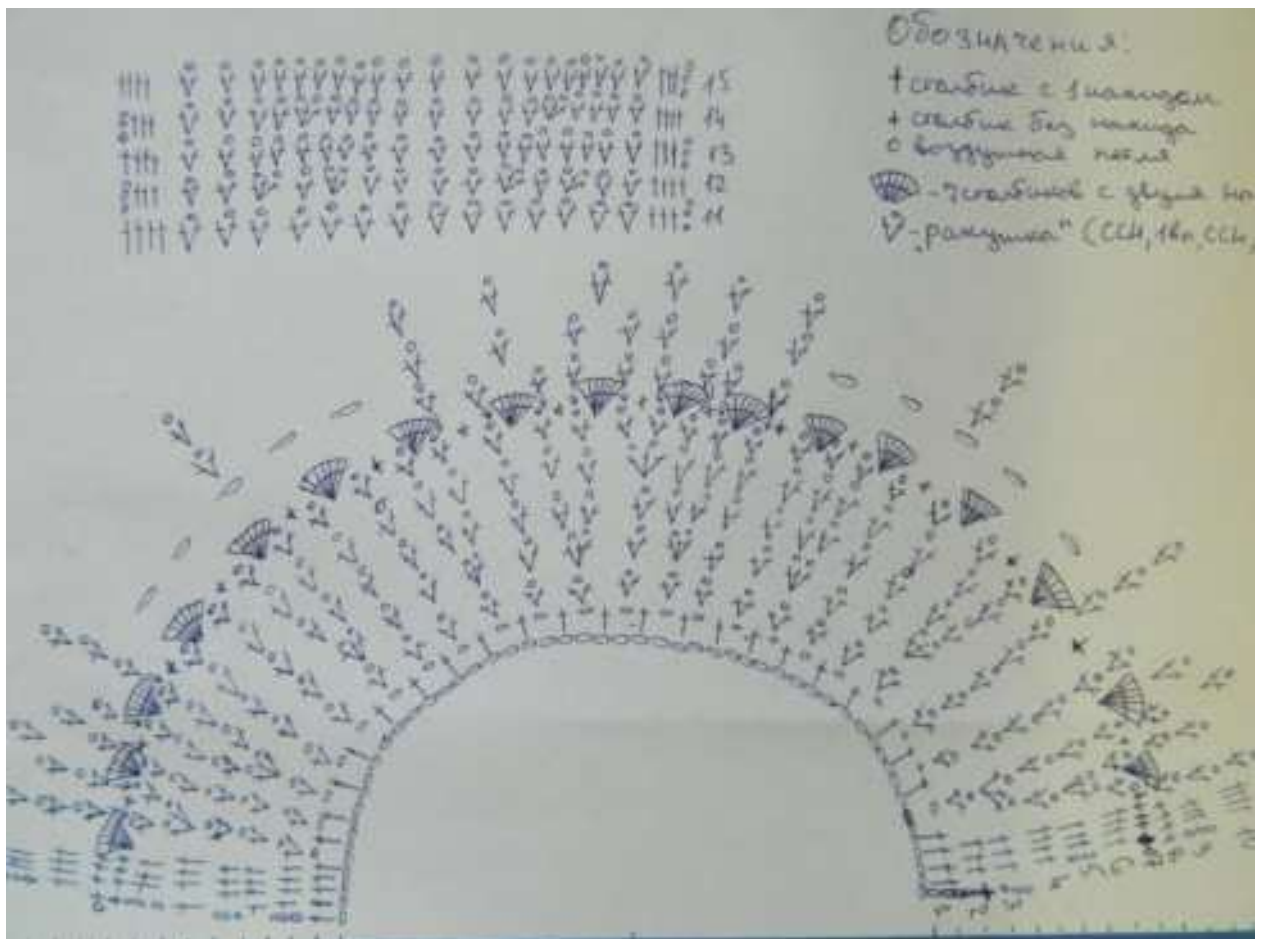 Обозначения:
† столбик с 1 накидом
+ столбик без накида
o воздушная петля
- 7 столбиков с двумя
- "ракушка" (ССН, 1вп, ССН,
15
14
13
12
11